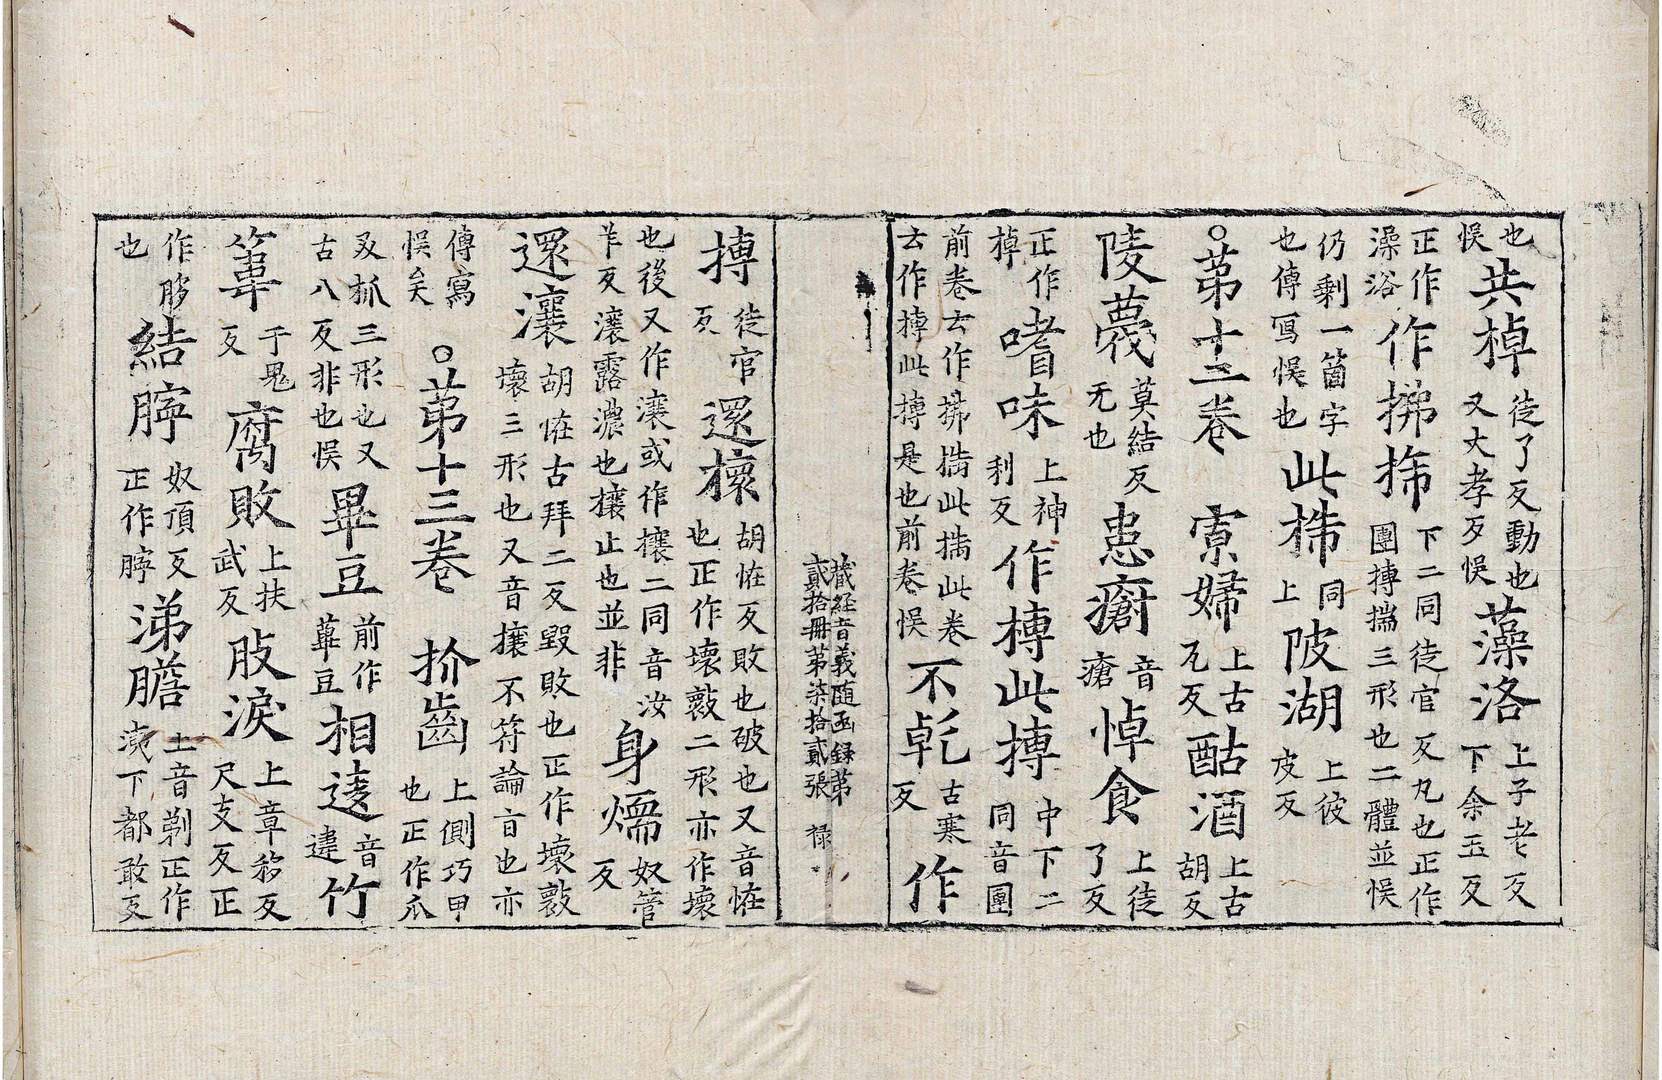 也悮共棹徒了反動也又大孝反悮藻洛上子老反下余玉反
正作澡浴作拂㧊下二同徒官反丸也正作團摶揣三形也二體並悮
仍剩一箇字也傳寫悮也此㧊同上陂湖上彼皮反
○苐十二卷寡婦上古瓦反酤酒上古胡反
陵蔑莫結反无也患瘡音瘡悼食上徒了反
正作掉嗜味上神利反作摶此摶中下二同音團
前卷云作拂揣此揣此卷云作摶此摶是也前卷悮不乹古寒反作
藏経音義随函録第貳拾冊苐柒拾貳張 禄
摶徒官反還壞胡恠反敗也破也又音恠也正作壊㱮二形亦作壞
也後又作瀼或作攘二同音汝羊反瀼露濃也攘止也並非身煗奴管反
還瀼胡恠古拜二反毀敗也正作壊㱮壞三形也又音攘不符論㫖也亦
傳寫悮矣○苐十三卷扴齒上側巧甲也正作爪
㕛抓三形也又古八反非也悮畢豆前作蓽豆相逺音違竹
葦于鬼反腐敗上扶武反䏢涙上章移反尺支反正
作䏧也結聹奴頂反正作聹涕膽上音剃正作洟下都敢反